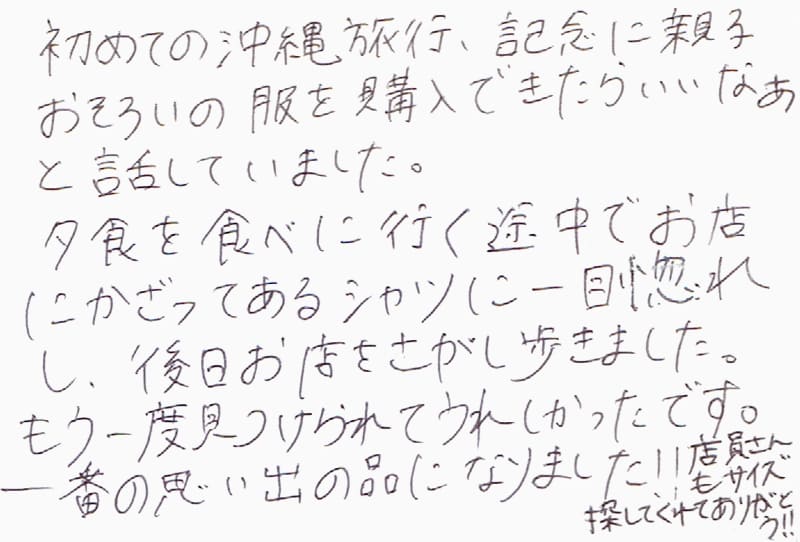 初めての沖縄旅行、記念に親子
おそろいの服を購入できたらいいなぁ
と話していました。
夕食を食べに行く途中でお店
にかざってあるシャツに一目惚れ
し、後日お店をさがし歩きました。
もう一度見つけられてうれしかったです。
一番の思い出の品になりました!!
店員さん
もサイズ
探してくれてありがと
う!!